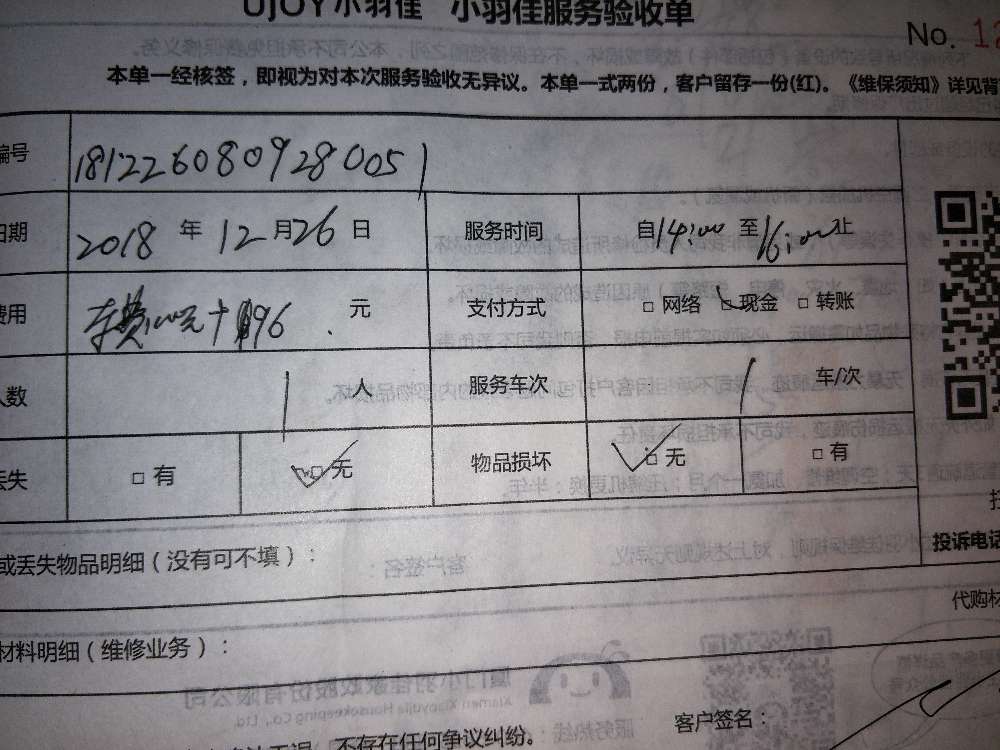 UJOY小羽佳 小羽佳服务验收单
No. 12
本单一经核签，即视为对本次服务验收无异议。本单一式两份，客户留存一份(红)。《维保须知》详见背
编号 181226080928005
日期 2018 年 12 月 26 日 服务时间 自 14:00 至 16:00 止
费用 车费100元+196 元 支付方式 □ 网络 □ 现金 □ 转账
人数 1 人 服务车次 1 车/次
丢失 □ 有 □ 无 物品损坏 □ 无 □ 有
投诉电话
或丢失物品明细（没有可不填）：
代购材
材料明细（维修业务）：
客户签名：
不存在任何争议纠纷。